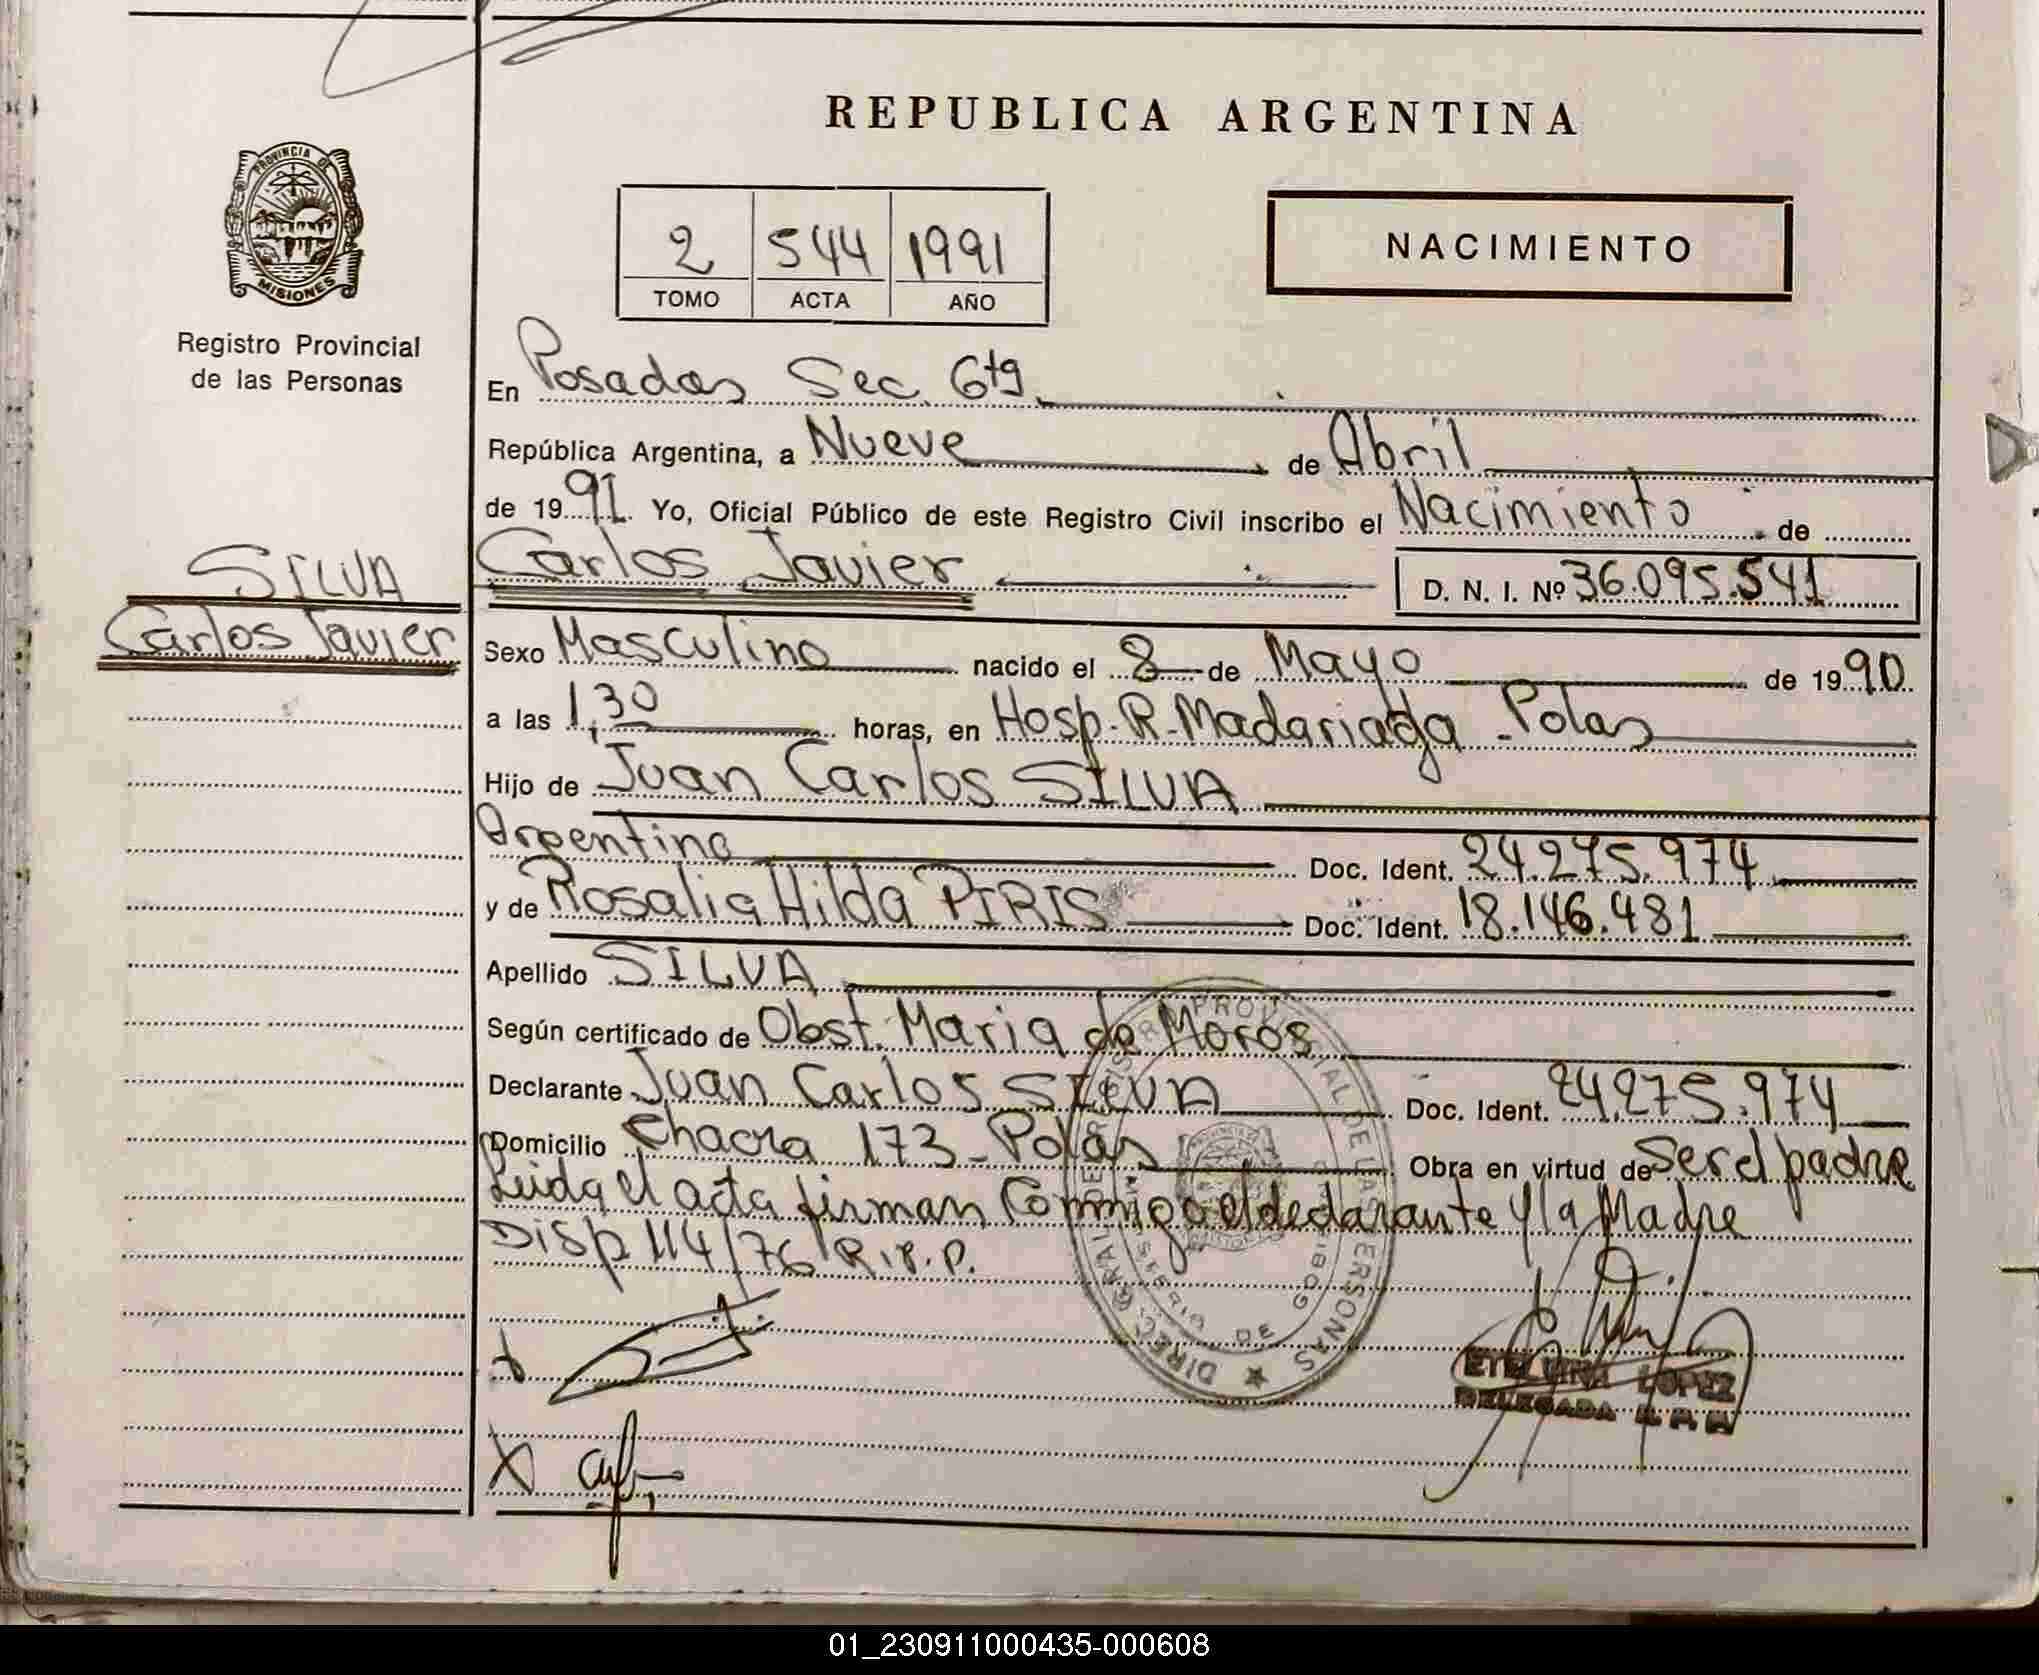 REPUBLICA ARGENTINA
PROVINCIA DE
MISIONES
Registro Provincial
de las Personas
2 544 1991
TOMO ACTA AÑO
NACIMIENTO
En Posadas Sec. 6ta
República Argentina, a Nueve de Abril
de 1991. Yo, Oficial Público de este Registro Civil inscribo el Nacimiento de
SILVA
Carlos Javier
Carlos Javier D. N. I. Nº 36.095.541
Sexo Masculino nacido el 8 de Mayo de 1990
a las 1,30 horas, en Hosp. R. Madariaga - Pdas
Hijo de Juan Carlos SILVA
Argentino Doc. Ident. 24.275.974
y de Rosalia Hilda PIRIS Doc. Ident. 18.146.481
Apellido SILVA
Según certificado de Obst. Maria de Moros
Declarante Juan Carlos SILVA Doc. Ident. 24.275.974
Domicilio Chacra 173 - Pdas Obra en virtud de Ser el padre
Leida el acta firman Conmigo el declarante y la Madre
Disp 114/76 R.P.P.
ETELVINA LOPEZ
DELEGADA R. P. P.
01_230911000435-000608